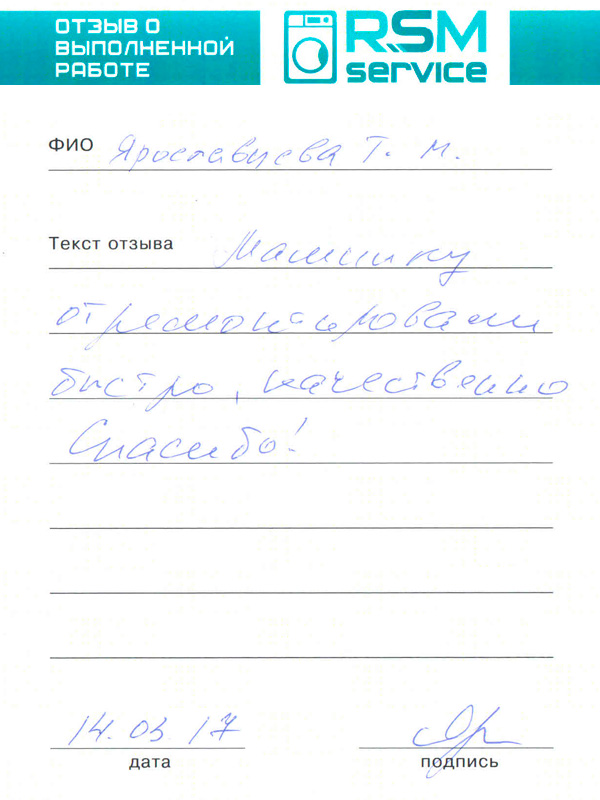 ОТЗЫВ О
ВЫПОЛНЕННОЙ
РАБОТЕ
RSM
service
ФИО Ярославцева Т. М.
Текст отзыва Машинку
отремонтировали
быстро, качественно
Спасибо!
14.03.17
дата подпись